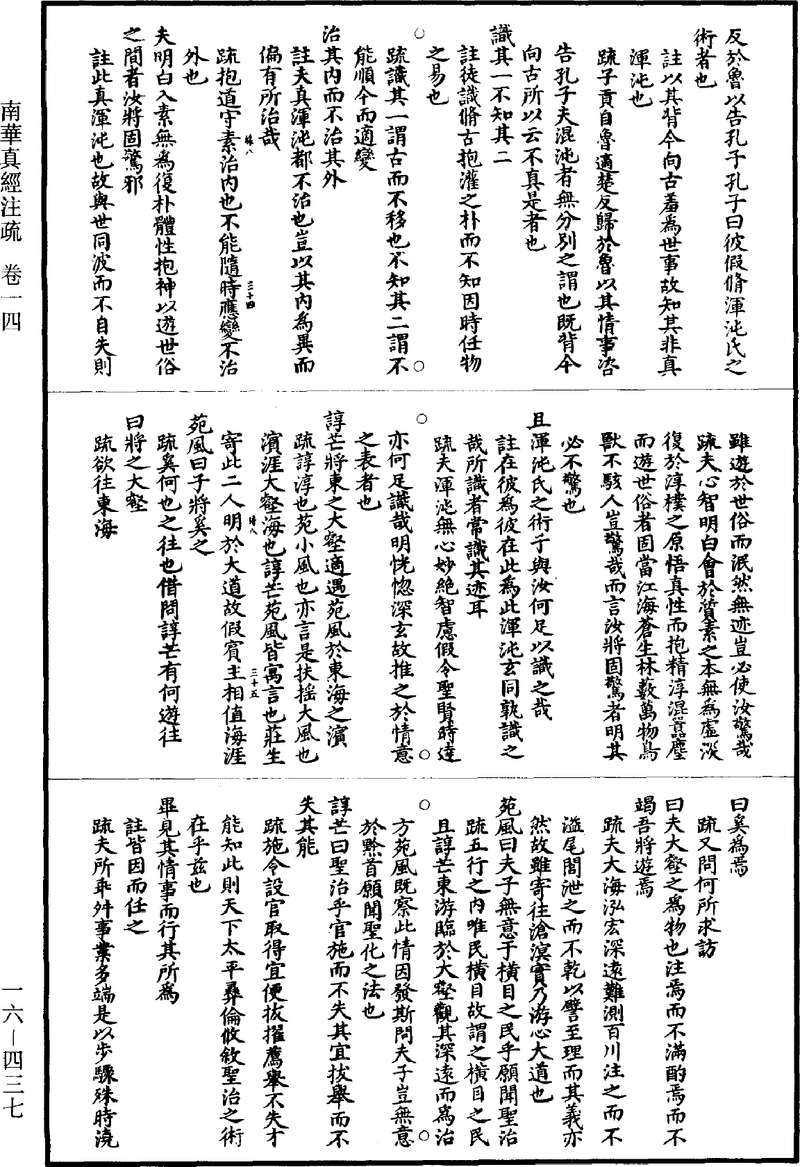 南華真經注疏　卷一四
一六—四三七
反於魯以告孔子孔子曰彼假脩渾沌氏之
術者也
註以其背今向古羞為世事故知其非真
渾沌也
疏子貢自魯適楚反歸於魯以其情事咨
告孔子夫混沌者無分別之謂也既背今
向古所以云不真是者也
識其一不知其二
註徒識脩古抱灌之朴而不知因時任物
之易也
疏識其一謂古而不移也不知其二謂不
能順今而適變
治其內而不治其外
註夫真渾沌都不治也豈以其內為異而
偏有所治哉
疏抱道守素治內也不能隨時應變不治
外也
夫明白入素無為復朴體性抱神以遊世俗
之間者汝將固驚邪
註此真渾沌也故與世同波而不自失則
雖遊於世俗而泯然無迹豈必使汝驚哉
疏夫心智明白會於質素之本無為虛淡
復於淳樸之原悟真性而抱精淳混囂塵
而遊世俗者固當江海蒼生林藪萬物鳥
獸不駭人豈驚哉而言汝將固驚者明其
必不驚也
且渾沌氏之術予與汝何足以識之哉
註在彼為彼在此為此渾沌玄同孰識之
哉所識者常識其迹耳
疏夫渾沌無心妙絕智慮假令聖賢時達
亦何足識哉明恍惚深玄故推之於情意
之表者也
諄芒將東之大壑適遇苑風於東海之濱
疏諄淳也苑小風也亦言是扶搖大風也
濱涯大壑海也諄芒苑風皆寓言也莊生
寄此二人明於大道故假賓主相值海涯
苑風曰子將奚之
疏奚何也之往也借問諄芒有何遊往
曰將之大壑
疏欲往東海
曰奚為焉
疏又問何所求訪
曰夫大壑之為物也注焉而不滿酌焉而不
竭吾將遊焉
疏夫大海泓宏深遠難測百川注之而不
溢尾閭泄之而不乾以譬至理而其義亦
然故雖寄往滄溟實乃游心大道也
苑風曰夫子無意于橫目之民乎願聞聖治
疏五行之內唯民橫目故謂之橫目之民
且諄芒東游臨於大壑觀其深遠而為治
方苑風既察此情因發斯問夫子豈無意
於黔首願聞聖化之法也
諄芒曰聖治乎官施而不失其宜拔舉而不
失其能
疏施令設官取得宜便拔擢薦舉不失才
能如此則天下太平彝倫攸敘聖治之術
在乎茲也
畢見其情事而行其所為
註皆因而任之
疏夫所乖舛事業多端是以步驟殊時澆